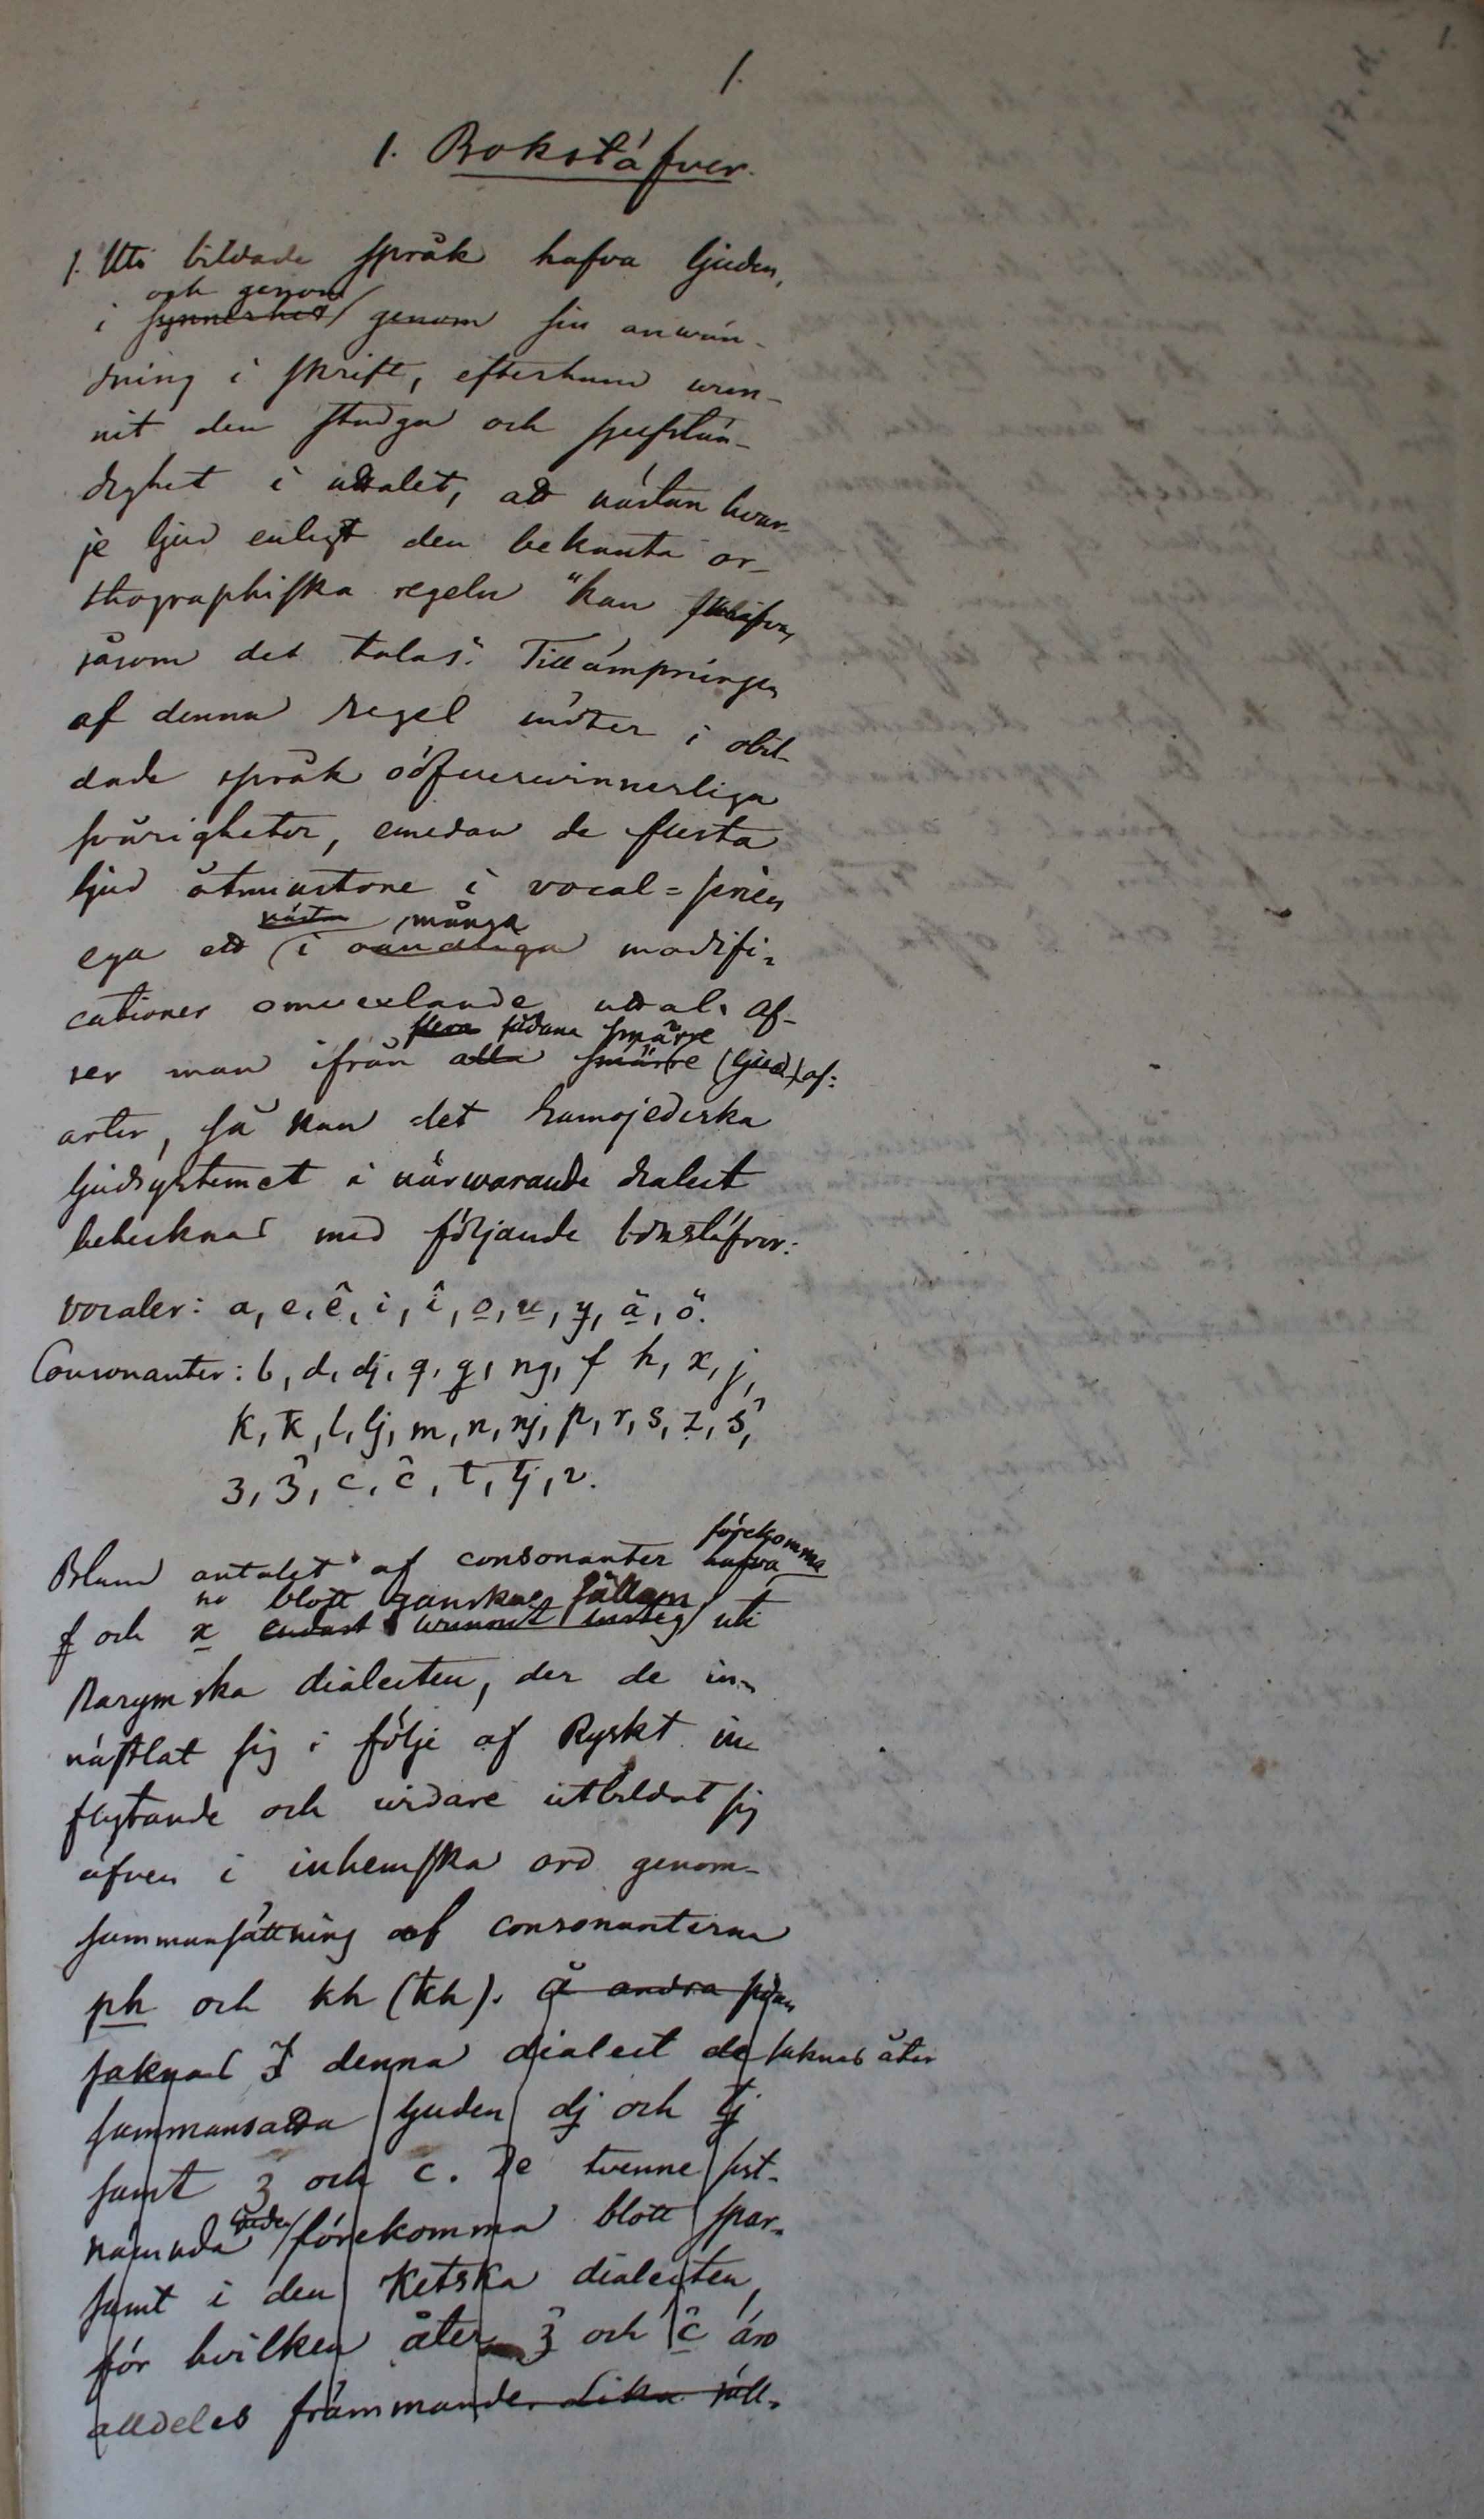 1.
1. Bokstäfver.
1. Uti bildade språk hafva ljuden,
och genom
i synnerhet genom sin anwän-
dning i skrift, efterhand wun-
nit den stadga och sjelfstän-
dighet i uttalet, att nästan hvar-
je ljud enligt den bekanta or-
thographiska regeln "kan skrifvas
såsom det talas". Tillämpningen
af denna regel möter i obil-
dade språk oöfvervinnerliga
svårigheter, emedan de flesta
ljud åtminstone i vocal=serien
nästan många
ega ett i oändliga modifi-
cationer omvexlande uttal. Af-
flera sådana smärre
ser man ifrån alla smärre (ljud) af-
arter, så kan det Samojediska
ljudsystemet i närwarande dialect
betecknas med följande bokstäfver:
vocaler: a, e, ê, i, î, o, u, y, ä, ö.
Consonanter: b, d, dj, g, g, ng, f h, x, j,
k, k, l, lj, m, n, nj, p, r, s, z, ŝ,
ʒ, ʒ̂, c, ĉ, t, tj, v.
förekomma
Bland antalet af consonanter hafva
blott ganska sällan
f och x endast wunnit insteg uti
Narymska dialecten, der de in-
nästlat sig i följe af Ryskt in
flytande och widare utbildat sig
äfven i inhemska ord genom
sammansättning af consonanterna
ph och kh (kh). å andra sidan
saknas I denna dialect de saknas åter
sammansatta ljuden dj och tj
samt ʒ och c. De tvenne sist-
ljuden
nämnda förekomma blott spar-
samt i den Ketska dialecten,
för hvilken åter ʒ̂ och ĉ äro
alldeles främmande. Lika säll-